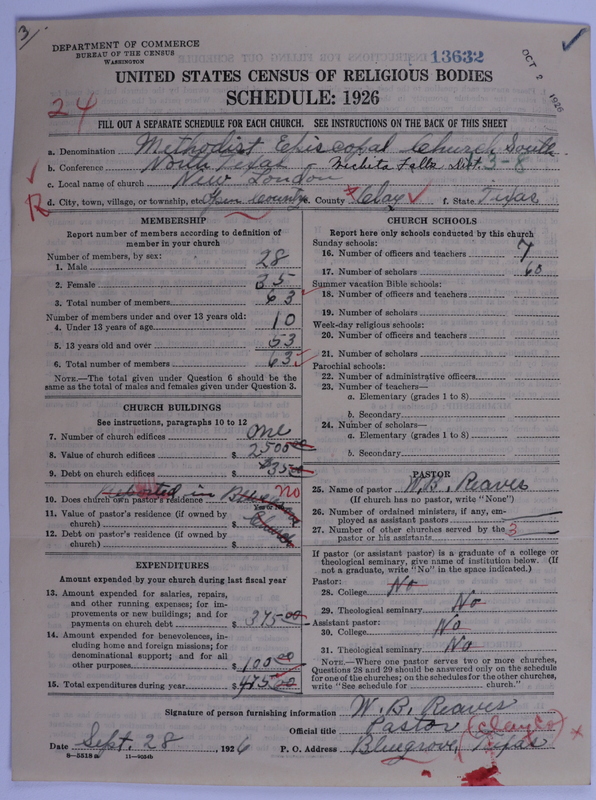 3
DEPARTMENT OF COMMERCE
BUREAU OF THE CENSUS
WASHINGTON
13632
OCT 2 1926
UNITED STATES CENSUS OF RELIGIOUS BODIES
SCHEDULE: 1926
24
FILL OUT A SEPARATE SCHEDULE FOR EACH CHURCH. SEE INSTRUCTIONS ON THE BACK OF THIS SHEET
a. Denomination Methodist Episcopal Church South
b. Conference North Texas Wichita Falls Dist. 3-8
c. Local name of church New London
d. City, town, village, or township, etc. Open County e. County Clay f. State Texas
R
MEMBERSHIP
Report number of members according to definition of member in your church
Number of members, by sex:
1. Male 28
2. Female 35
3. Total number of members 63
Number of members under and over 13 years old:
4. Under 13 years of age 10
5. 13 years old and over 53
6. Total number of members 63
NOTE.—The total given under Question 6 should be the same as the total of males and females given under Question 3.
CHURCH BUILDINGS
See instructions, paragraphs 10 to 12
7. Number of church edifices One
8. Value of church edifices $ 2500 00
9. Debt on church edifices $ 35 00
in
10. Does church own pastor's residence? No
Yes or No
11. Value of pastor's residence (if owned by church) $ Church
12. Debt on pastor's residence (if owned by church) $
EXPENDITURES
Amount expended by your church during last fiscal year
13. Amount expended for salaries, repairs, and other running expenses; for improvements or new buildings; and for payments on church debt $ 375 00
14. Amount expended for benevolences, including home and foreign missions; for denominational support; and for all other purposes $ 100 00
15. Total expenditures during year $ 475 00
CHURCH SCHOOLS
Report here only schools conducted by this church
Sunday schools:
16. Number of officers and teachers 7
17. Number of scholars 60
Summer vacation Bible schools:
18. Number of officers and teachers
19. Number of scholars
Week-day religious schools:
20. Number of officers and teachers
21. Number of scholars
Parochial schools:
22. Number of administrative officers
23. Number of teachers—
a. Elementary (grades 1 to 8)
b. Secondary
24. Number of scholars—
a. Elementary (grades 1 to 8)
b. Secondary
PASTOR
25. Name of pastor W. B. Reaves
(If church has no pastor, write "None")
26. Number of ordained ministers, if any, employed as assistant pastors
27. Number of other churches served by the pastor or his assistants 3
If pastor (or assistant pastor) is a graduate of a college or theological seminary, give name of institution below. (If not a graduate, write "No" in the space indicated.)
Pastor:
28. College No
29. Theological seminary No
Assistant pastor:
30. College No
31. Theological seminary No
NOTE.—Where one pastor serves two or more churches, Questions 28 and 29 should be answered only on the schedule for one of the churches; on the schedules for the other churches, write "See schedule for church."
Signature of person furnishing information W. B. Reaves
Official title Pastor (Clay Co)
Date Sept. 28, 1926 P. O. Address Bluegrove, Texas
8—5518 11—9034b